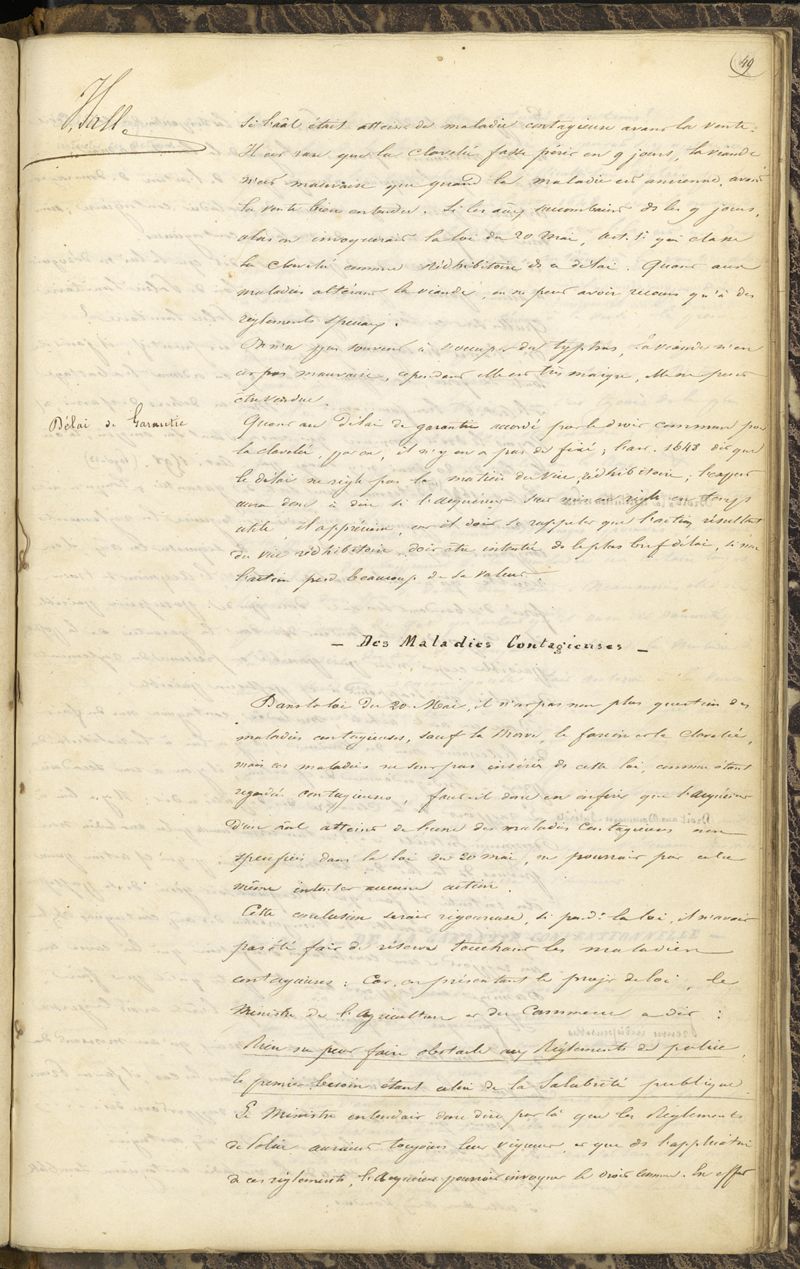 49
Hall.
Si l'aâl était atteint de maladie contagieuse avant la vente.
Il est rare que la clavelée fasse périr en 9 jours, la viande
n'est mauvaise que quand la maladie est ancienne, avant
la vente bien entendu. Si les aux succombaient ds les 9 jours,
alors on invoquerait la loi du 20 Mai, art. 1er qui classe
la clavelée comme rédhibitoire ds ce délai. Quant aux
maladies altérant la viande, on ne peut avoir recours qu'à des
règlements spéciaux.
On n'a pas souvent à s'occuper du typhus, la viande n'en
est pas mauvaise, cependant elle est très maigre, elle ne peut
être vendue.
Délai de Garantie
Quant au Délai de garantie accordé par le droit commun pour
la clavelée, il n'y en a pas de fixé; l'art. 1648 dit que
le délai se règle par la nature du vice rédhibitoire; l'expert
aura donc à dire si l'acquéreur s'est mis en règle en temps
utile, il appréciera, car il doit se rappeler que l'action résultant
du vice rédhibitoire doit être intentée ds le plus bref délai, si non
l'action perd beaucoup de sa valeur.
— Des Maladies Contagieuses —
Dans la loi du 20 Mai, il n'est pas non plus question des
maladies contagieuses, sauf la Morve le farcin et la Clavelée,
mais ces maladies ne sont pas insérées ds cette loi, comme étant
regardées contagieuses, faut-il donc en inférer que l'acquéreur
d'un aâl atteint de l'une des maladies contagieuses non
spécifiées dans la loi du 20 mai, ne pourrait par cela
même intenter aucune action.
Cette conclusion serait rigoureuse, si pendt la loi, il n'avait
pas été fait de réserve touchant les maladies
contagieuses: Car, en présentant le projet de loi, le
Ministre de l'Agriculture et du Commerce a dit:
Rien ne peut faire obstacle aux Règlements de police,
le premier besoin étant celui de la Salubrité publique.
Le Ministre entendait donc dire par là que les Règlements
de Police auraient toujours leur vigueur, et que ds l'application
de ces règlements, l'Acquéreur pourrait invoquer le droit commun. En effet